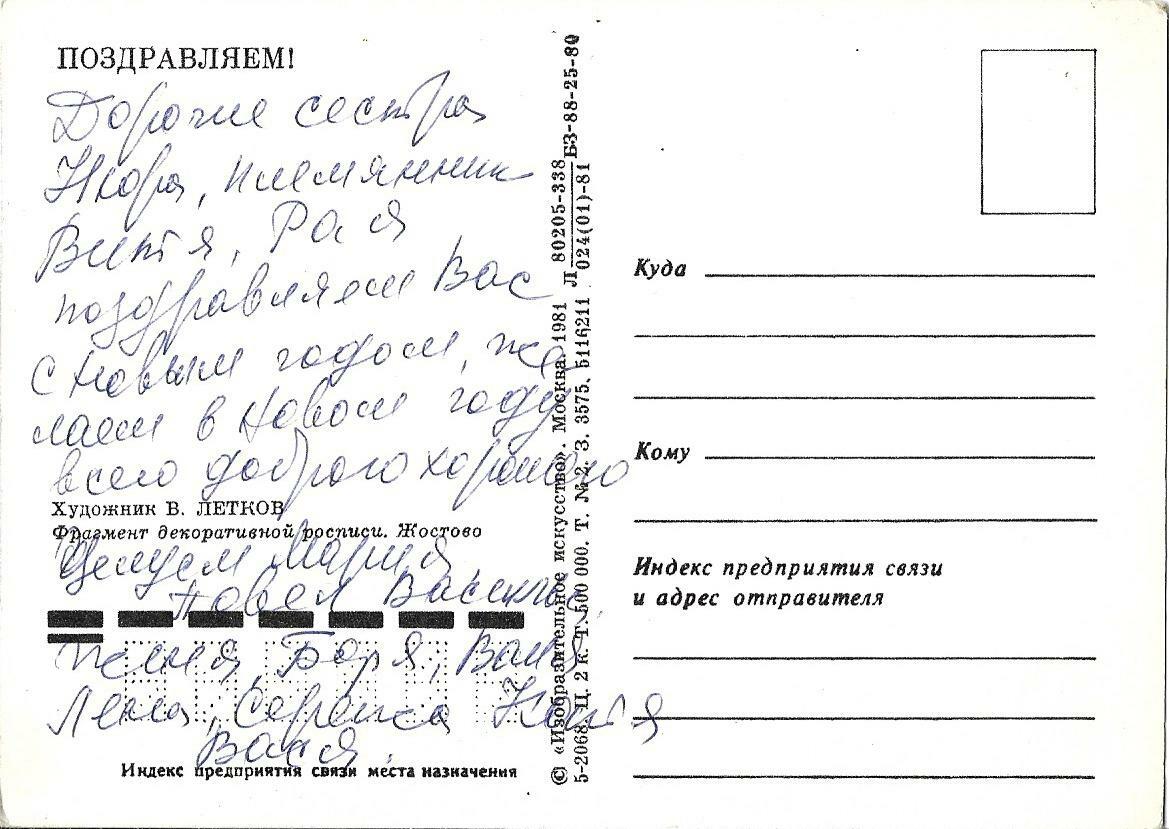 ПОЗДРАВЛЯЕМ!
Дорогие сестра
Нюра, племянник
Витя, Рая
поздравляем Вас
с Новым годом, же
лаем в Новом году
всего доброго хорошего
Художник В. ЛЕТКОВ
Фрагмент декоративной росписи. Жостово
Целуем Мария,
Павел Василий
Женя, Боря, Ваня
Лена, Сережа Катя
Вася.
Индекс предприятия связи места назначения
© «Изобразительное искусство». Москва. 1981 Л 80205-338 БЗ-88-25-80
024(01)-81
5-2068. Ц. 2 к. Т. 500 000. Т. № 2. З. 3575. 5116211
Куда
Кому
Индекс предприятия связи
и адрес отправителя